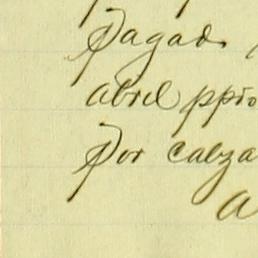 Pagad
abril ppdo
Por calza
a